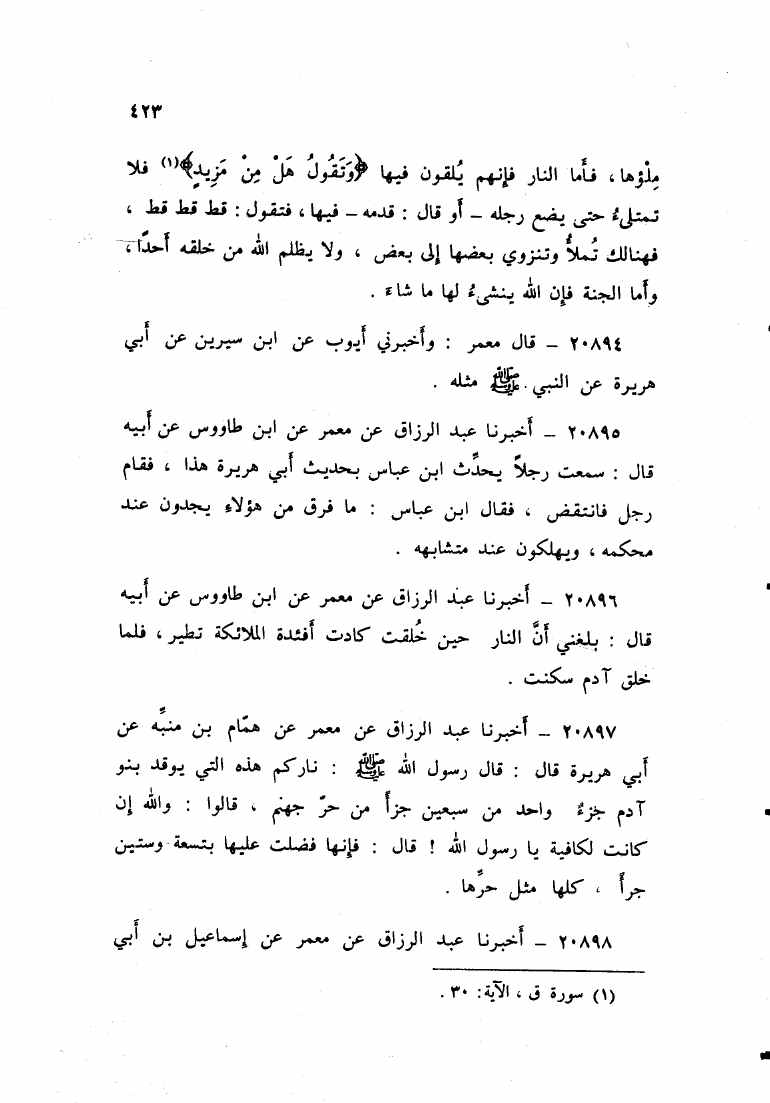 ٤٢٣
مِلْؤها ، فأما النار فإنهم يُلقون فيها ﴿وَتَقُولُ هَلْ مِنْ مَزِيدٍ﴾(١) فلا
تمتلىءُ حتى يضع رجله – أو قال : قدمه – فيها ، فتقول : قط قط قط ،
فهنالك تُملأُ وتنزوي بعضها إلى بعض ، ولا يظلم الله من خلقه أحدًا ،
وأما الجنة فإن الله ينشىءُ لها ما شاءَ .
٢٠٨٩٤ – قال معمر : وأخبرني أيوب عن ابن سيرين عن أبي
هريرة عن النبي ﷺ مثله .
٢٠٨٩٥ – أخبرنا عبد الرزاق عن معمر عن ابن طاووس عن أبيه
قال : سمعت رجلاً يحدِّث ابن عباس بحديث أبي هريرة هذا ، فقام
رجل فانتقض ، فقال ابن عباس : ما فرق من هؤلاءِ يجدون عند
محكمه ، ويهلكون عند متشابهه .
٢٠٨٩٦ – أخبرنا عبد الرزاق عن معمر عن ابن طاووس عن أبيه
قال : بلغني أنَّ النار حين خُلقت كادت أفئدة الملائكة تطير ، فلما
خلق آدم سكنت .
٢٠٨٩٧ – أخبرنا عبد الرزاق عن معمر عن همّام بن منبِّه عن
أبي هريرة قال : قال رسول الله ﷺ : ناركم هذه التي يوقد بنو
آدم جزءٌ واحد من سبعين جزأً من حرّ جهنم ، قالوا : والله إن
كانت لكافية يا رسول الله ! قال : فإنها فضلت عليها بتسعة وستين
جرأً ، كلها مثل حرِّها .
٢٠٨٩٨ – أخبرنا عبد الرزاق عن معمر عن إسماعيل بن أبي
(١) سورة ق ، الآية : ٣٠ .